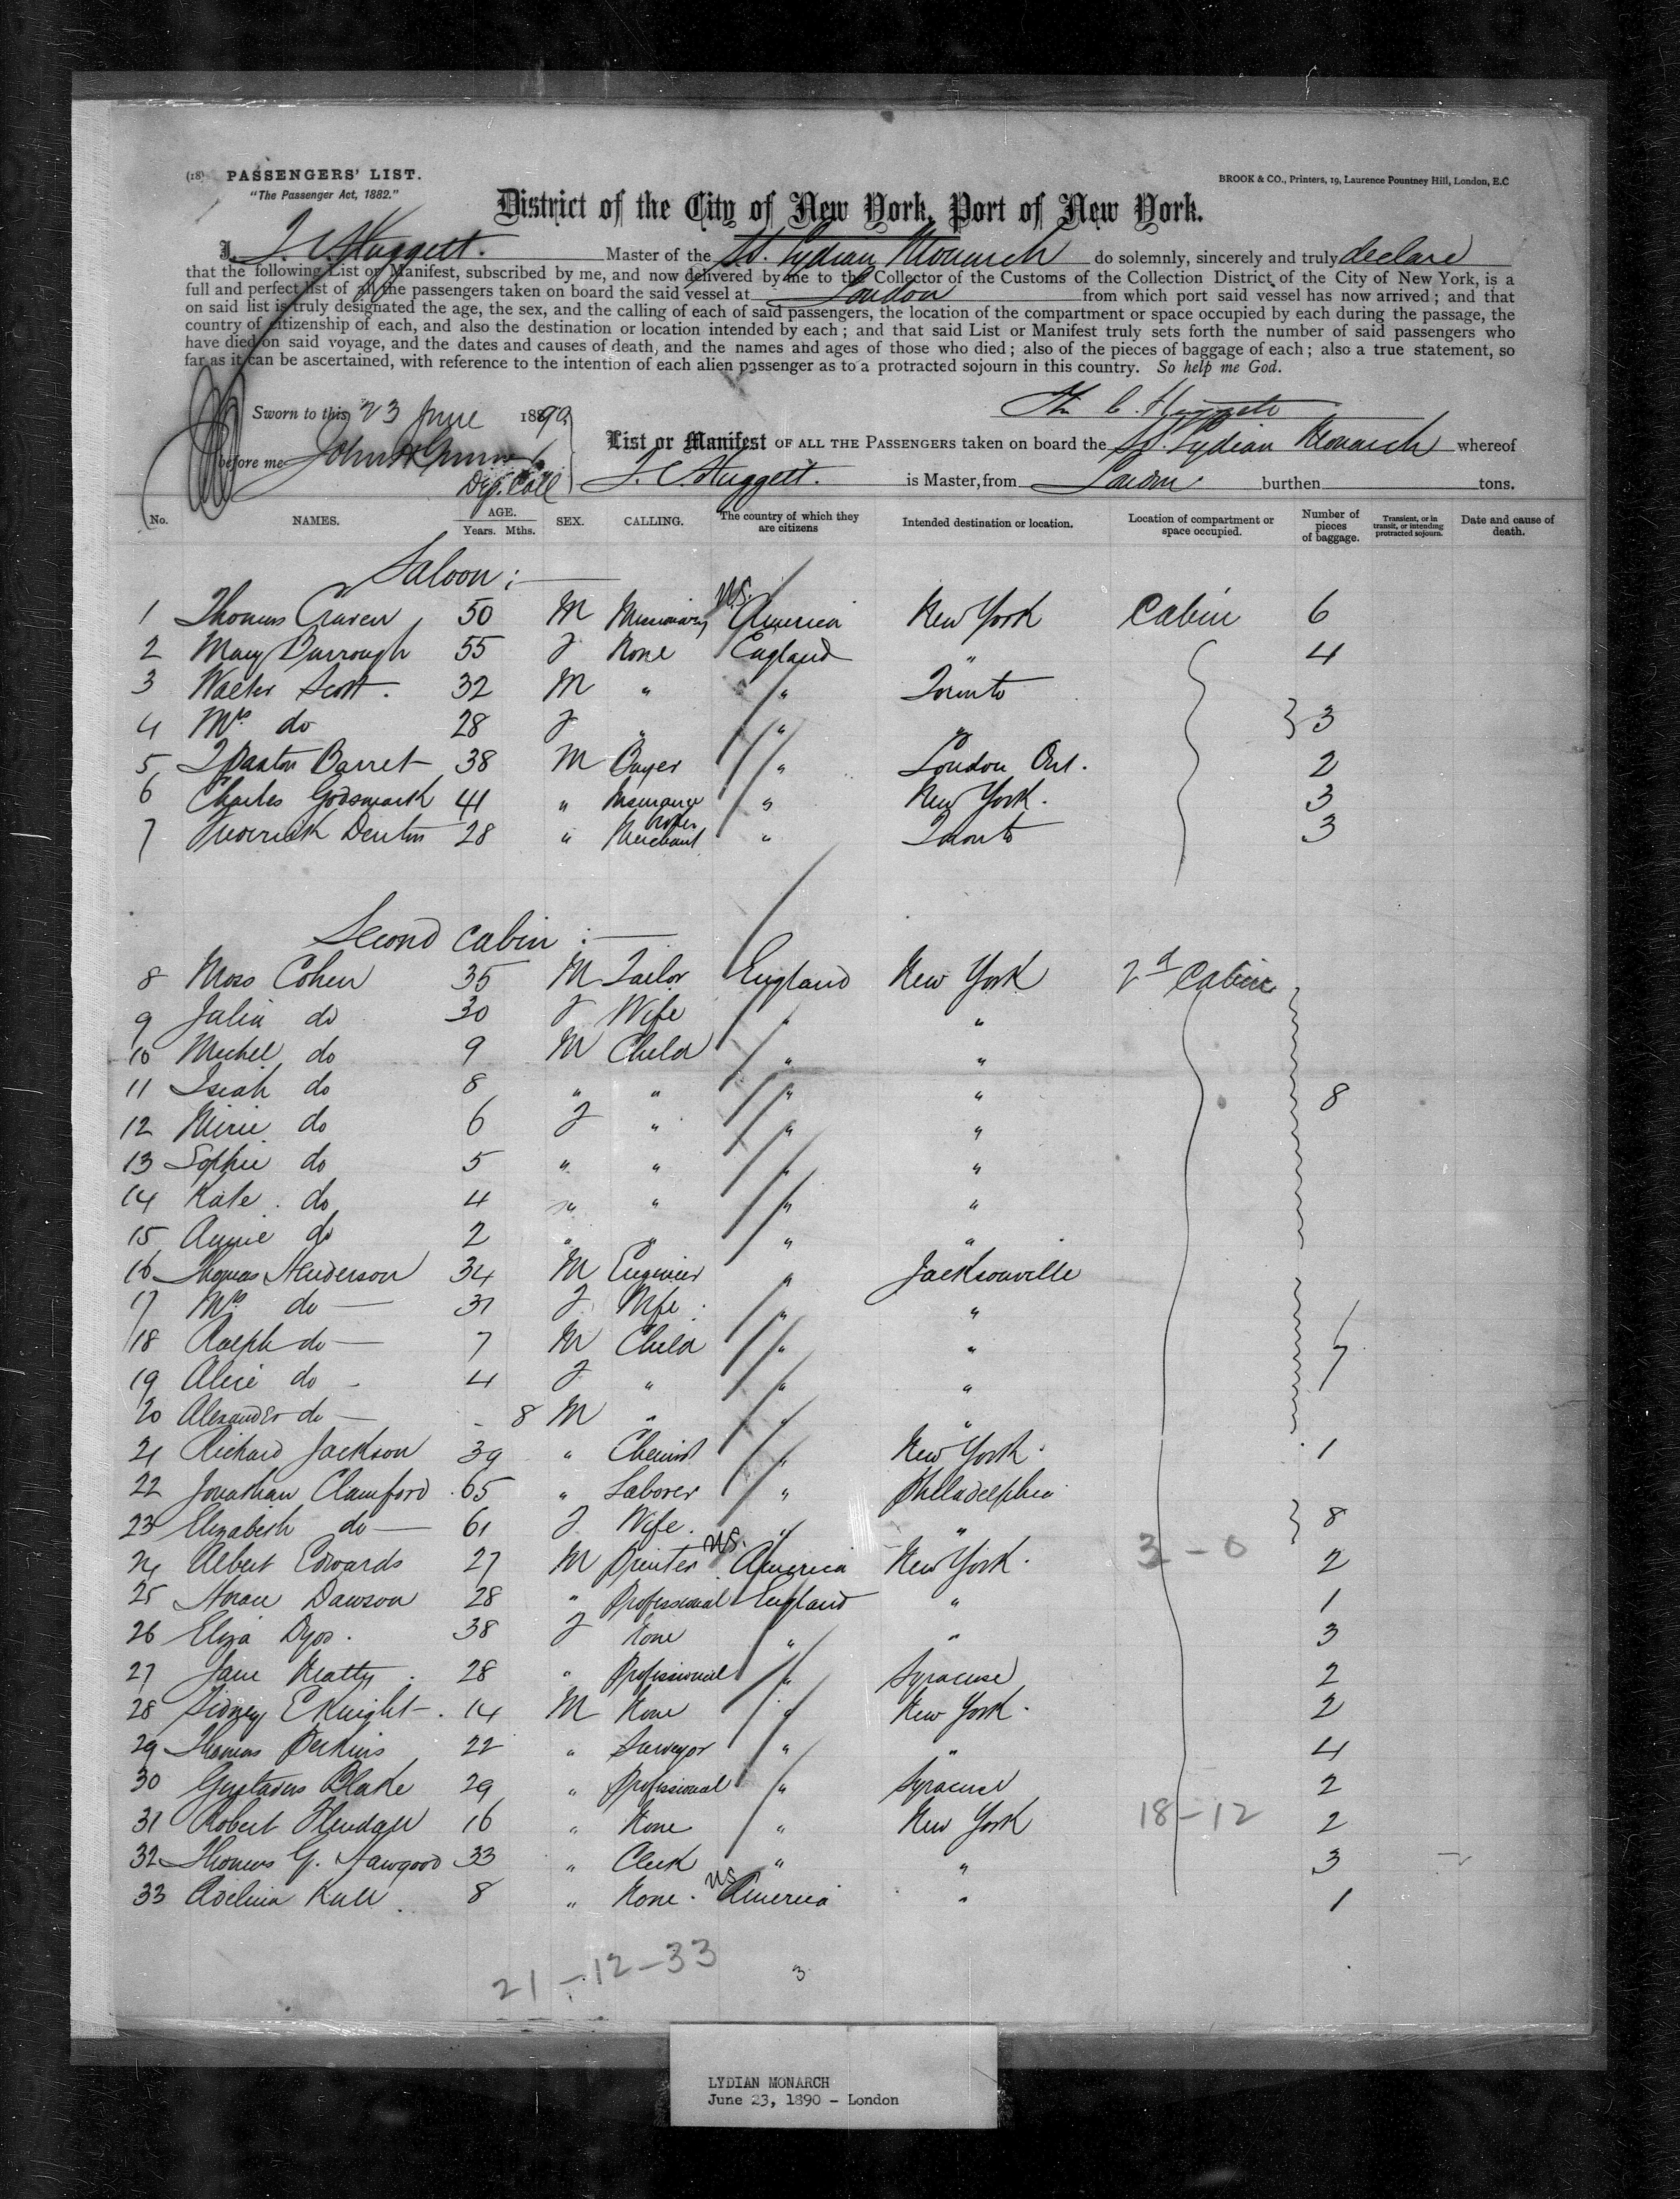 (18) PASSENGERS' LIST.
"The Passenger Act, 1882."
BROOK & CO., Printers, 19, Laurence Pountney Hill, London, E.C
District of the City of New York, Port of New York.
I, J. C. Huggett. Master of the SS. Lydian Monarch do solemnly, sincerely and truly declare
that the following List or Manifest, subscribed by me, and now delivered by me to the Collector of the Customs of the Collection District of the City of New York, is a
full and perfect list of all the passengers taken on board the said vessel at London from which port said vessel has now arrived; and that
on said list is truly designated the age, the sex, and the calling of each of said passengers, the location of the compartment or space occupied by each during the passage, the
country of citizenship of each, and also the destination or location intended by each; and that said List or Manifest truly sets forth the number of said passengers who
have died on said voyage, and the dates and causes of death, and the names and ages of those who died; also of the pieces of baggage of each; also a true statement, so
far as it can be ascertained, with reference to the intention of each alien passenger as to a protracted sojourn in this country. So help me God.
Huggett
Sworn to this 23 June 1890
before me John
Dep. Coll
List or Manifest OF ALL THE PASSENGERS taken on board the SS. Lydian Monarch whereof
J. C. Huggett. is Master, from London. burthen tons.
No. NAMES. AGE. Years. Mths. SEX. CALLING. The country of which they are citizens Intended destination or location. Location of compartment or space occupied. Number of pieces of baggage. Transient, or in transit, or intending protracted sojourn. Date and cause of death.
Saloon :
1 Thomas Craven 50 M Missionary U.S. America New York Cabin 6
2 Mary Burrough 55 F None England " 4
3 Walter Scott. 32 M " " Toronto
4 Mrs do 28 F " " " } 3
5 Barret 38 M Buyer " London Ont. 2
6 Charles Godsmark 41 " Insurance " New York. 3
7 Frederick Denton 28 " Merchant " Toronto 3
Second Cabin :
8 Moss Cohen 35 M Tailor England New York 2d Cabin
9 Julia do 30 F Wife " "
10 Michel do 9 M Child " "
11 Isiah do 8 " " " " 8
12 do 6 F " " "
13 Sophie do 5 " " " "
14 Kate do 4 " " " "
15 Annie do 2 " " " "
16 Thomas Henderson 34 M Engineer " Jacksonville
17 Mrs do 31 F Wife " "
18 Ralph do 7 M Child " " 7
19 Alice do 4 F " " "
20 Alexander do - 8 M " " "
21 Richard Jackson 39 " Chemist " New York. 1
22 Jonathan Clamford 65 " Laborer " Philadelphia
23 Elizabeth do 61 F Wife. " " } 8
24 Albert Edwards 27 M Printer U.S. America New York. 3 - 0 2
25 Dawson 28 " Professional England " 1
26 Eliza Dyos. 38 F None " " 3
27 Jane 28 " Professional " Syracuse 2
28 Sidney E Knight 14 M None " New York. 2
29 Thomas Perkins 22 " Surveyor " " 4
30 Gustavus Blake 29 " Professional " Syracuse 2
31 Robert 16 " None " New York 18-12 2
32 Thomas G. Hawgood 33 " Clerk " " 3
33 Adelina 8 " None. U.S. America " 1
21 - 12 - 33 3
LYDIAN MONARCH
June 23, 1890 - London